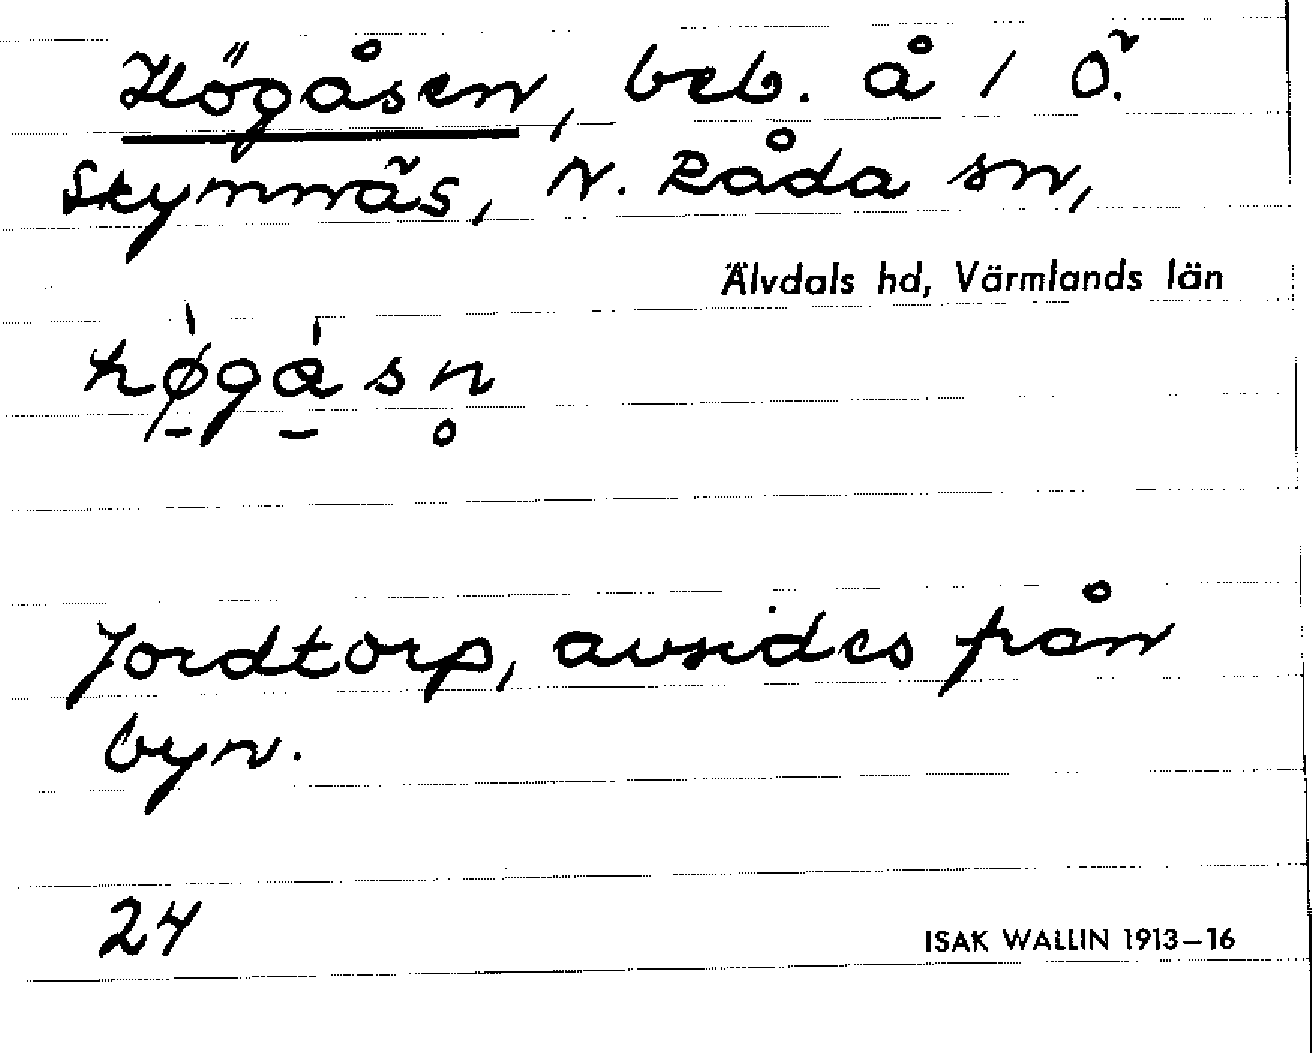 Högåsen, beb. å 1 Ö.
Skymnäs, N. Råda sn,
Älvdals hd, Värmlands län
hø̱̍ga̱̍sn̥
Jordtorp, avsides från
byn.
24
ISAK WALLIN 1913–16